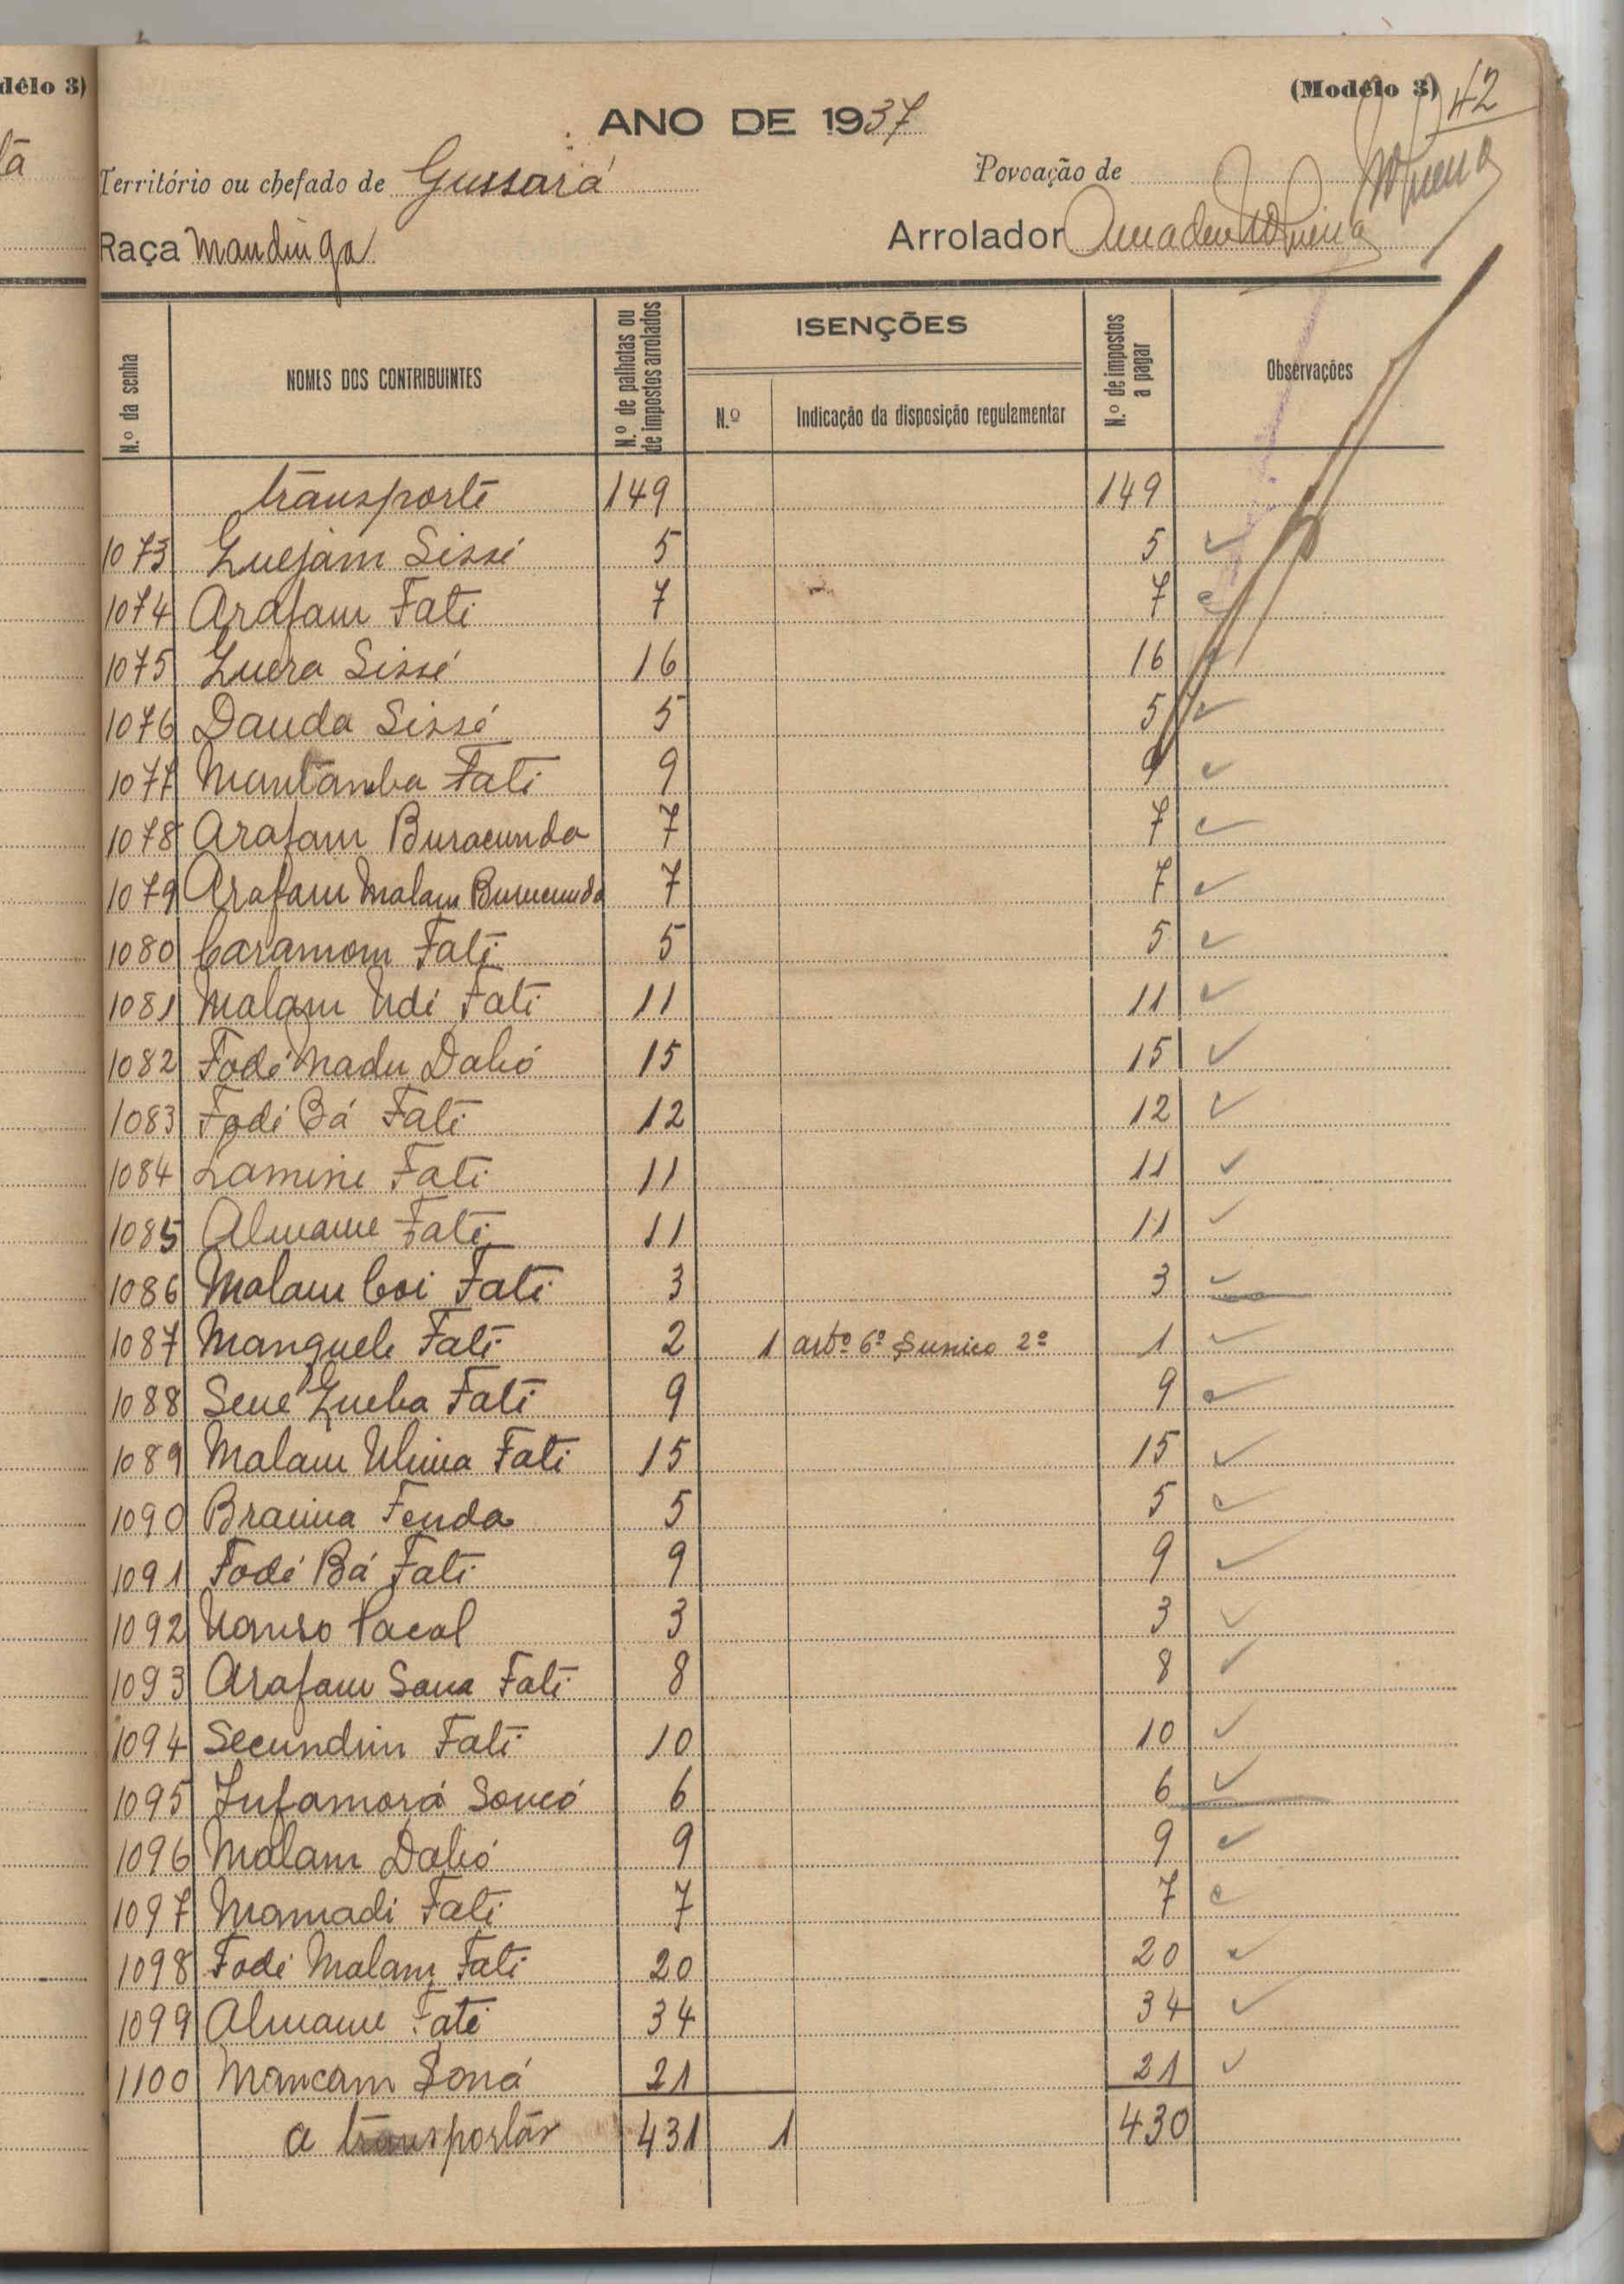 délo 3)
(Modêlo 3) 42
ANO DE 1937
Território ou chefado de Gussará Povoação de
Raça Mandinga Arrolador Amadeu
N.º da senha NOMES DOS CONTRIBUINTES N.º de palhotas ou de impostos arrolados ISENÇÕES N.º de impostos a pagar Observações
N.º Indicação da disposição regulamentar
transporte 149 149
1073 Quejam Sissé 5 5
1074 Arafam Fati 7 7
1075 Quera Sissé 16 16
1076 Dauda Sissé 5 5
1077 Muntamba Fati 9 9
1078 Arafam Buracunda 7 7
1079 Arafam Malam Buracunda 7 7
1080 Caramom Fati 5 5
1081 Malam Udi Fati 11 11
1082 Fodé Madu Dabó 15 15
1083 Fodé Bá Fati 12 12
1084 Lamine Fati 11 11
1085 Almame Fati 11 11
1086 Malam Coi Fati 3 3
1087 Manguele Fati 2 1 artº 6º § unico 2º 1
1088 Sené Queba Fati 9 9
1089 Malam Fati 15 15
1090 Braima Fenda 5 5
1091 Fodé Bá Fati 9 9
1092 3 3
1093 Arafam Sana Fati 8 8
1094 Secundim Fati 10 10
1095 Infamorá Soncó 6 6
1096 Malam Dabó 9 9
1097 Mamadi Fati 7 7
1098 Fodé Malam Fati 20 20
1099 Almame Fati 34 34
1100 Mancam Soná 21 21
a transportár 431 1 430